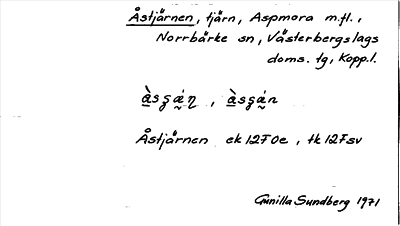 Åstjärnen, tjärn, Aspmora m.fl.,
Norrbärke sn, Västerbergslags
doms. tg, Kopp.l.
Åstjärnen ek 12F0e, tk 12Fsv
Gunilla Sundberg 1971